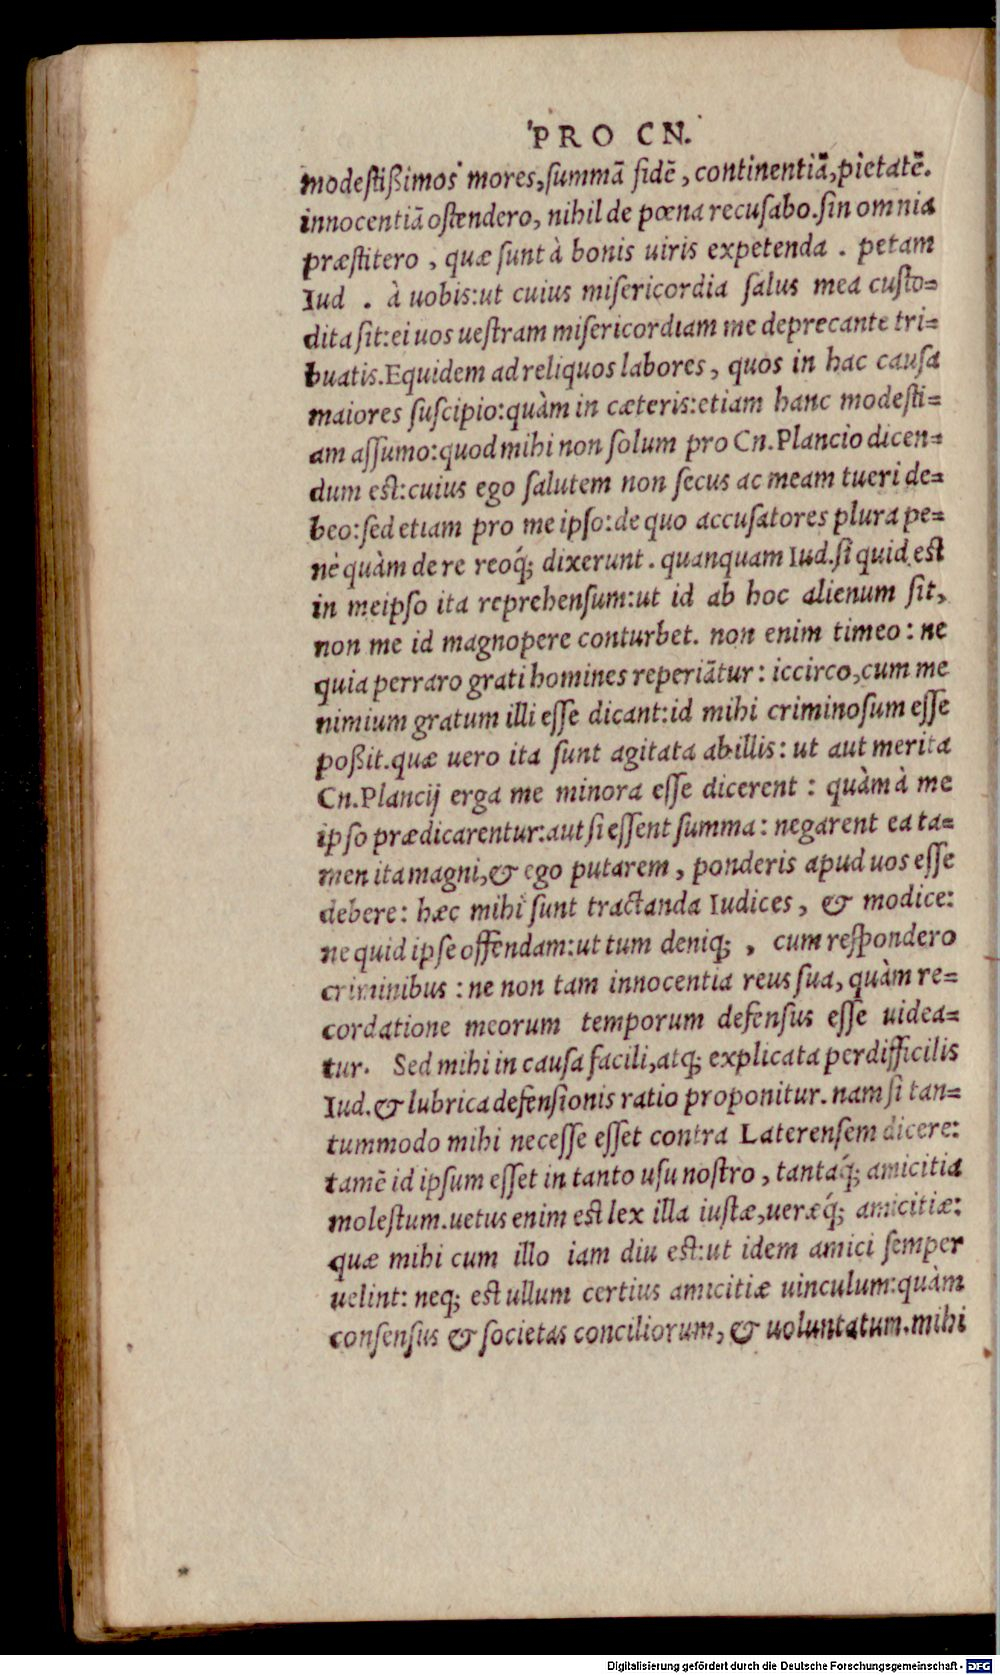 PRO CN.
modestißimos mores, summā fidē, continentiā, pietatē.
innocentiā ostendero, nihil de pœna recusabo. sin omnia
præstitero, quæ sunt à bonis uiris expetenda. petam
Iud. à uobis: ut cuius misericordia salus mea custo=
dita sit: ei uos uestram misericordiam me deprecante tri=
buatis. Equidem ad reliquos labores, quos in hac causa
maiores suscipio: quàm in cæteris: etiam hanc modesti=
am assumo: quod mihi non solum pro Cn. Plancio dicen=
dum est: cuius ego salutem non secus ac meam tueri de=
beo: sed etiam pro me ipso: de quo accusatores plura pe=
nè quàm de re reoq́; dixerunt. quanquam Iud. si quid est
in meipso ita reprehensum: ut id ab hoc alienum sit,
non me id magnopere conturbet. non enim timeo: ne
quia perraro grati homines reperiātur: iccirco, cum me
nimium gratum illi esse dicant: id mihi criminosum esse
poßit. quæ uero ita sunt agitata ab illis: ut aut merita
Cn. Plancij erga me minora esse dicerent: quàm à me
ipso prædicarentur: aut si essent summa: negarent ea ta=
men ita magni, & ego putarem, ponderis apud uos esse
debere: hæc mihi sunt tractanda Iudices, & modice:
ne quid ipse offendam: ut tum deniq;, cum respondero
criminibus: ne non tam innocentia reus sua, quàm re=
cordatione meorum temporum defensus esse uidea=
tur. Sed mihi in causa facili, atq; explicata perdifficilis
Iud. & lubrica defensionis ratio proponitur. nam si tan=
tummodo mihi necesse esset contra Laterensem dicere:
tamē id ipsum esset in tanto usu nostro, tantaq́; amicitia
molestum. uetus enim est lex illa iustæ, ueræq́; amicitiæ:
quæ mihi cum illo iam diu est: ut idem amici semper
uelint: neq; est ullum certius amicitiæ uinculum: quàm
consensus & societas conciliorum, & uoluntatum. mihi
Digitalisierung gefördert durch die Deutsche Forschungsgemeinschaft - DFG